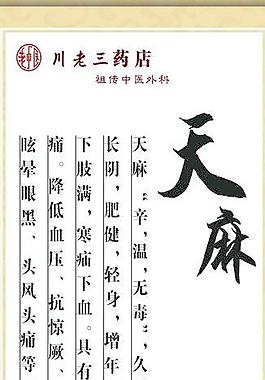 川老三药店
祖传中医外科
天麻
天麻“辛，温，无毒”，久
长阴，肥健，轻身，增年
下肢满，寒疝下血。具有
痛。降低血压、抗惊厥、
眩晕眼黑、头风头痛等